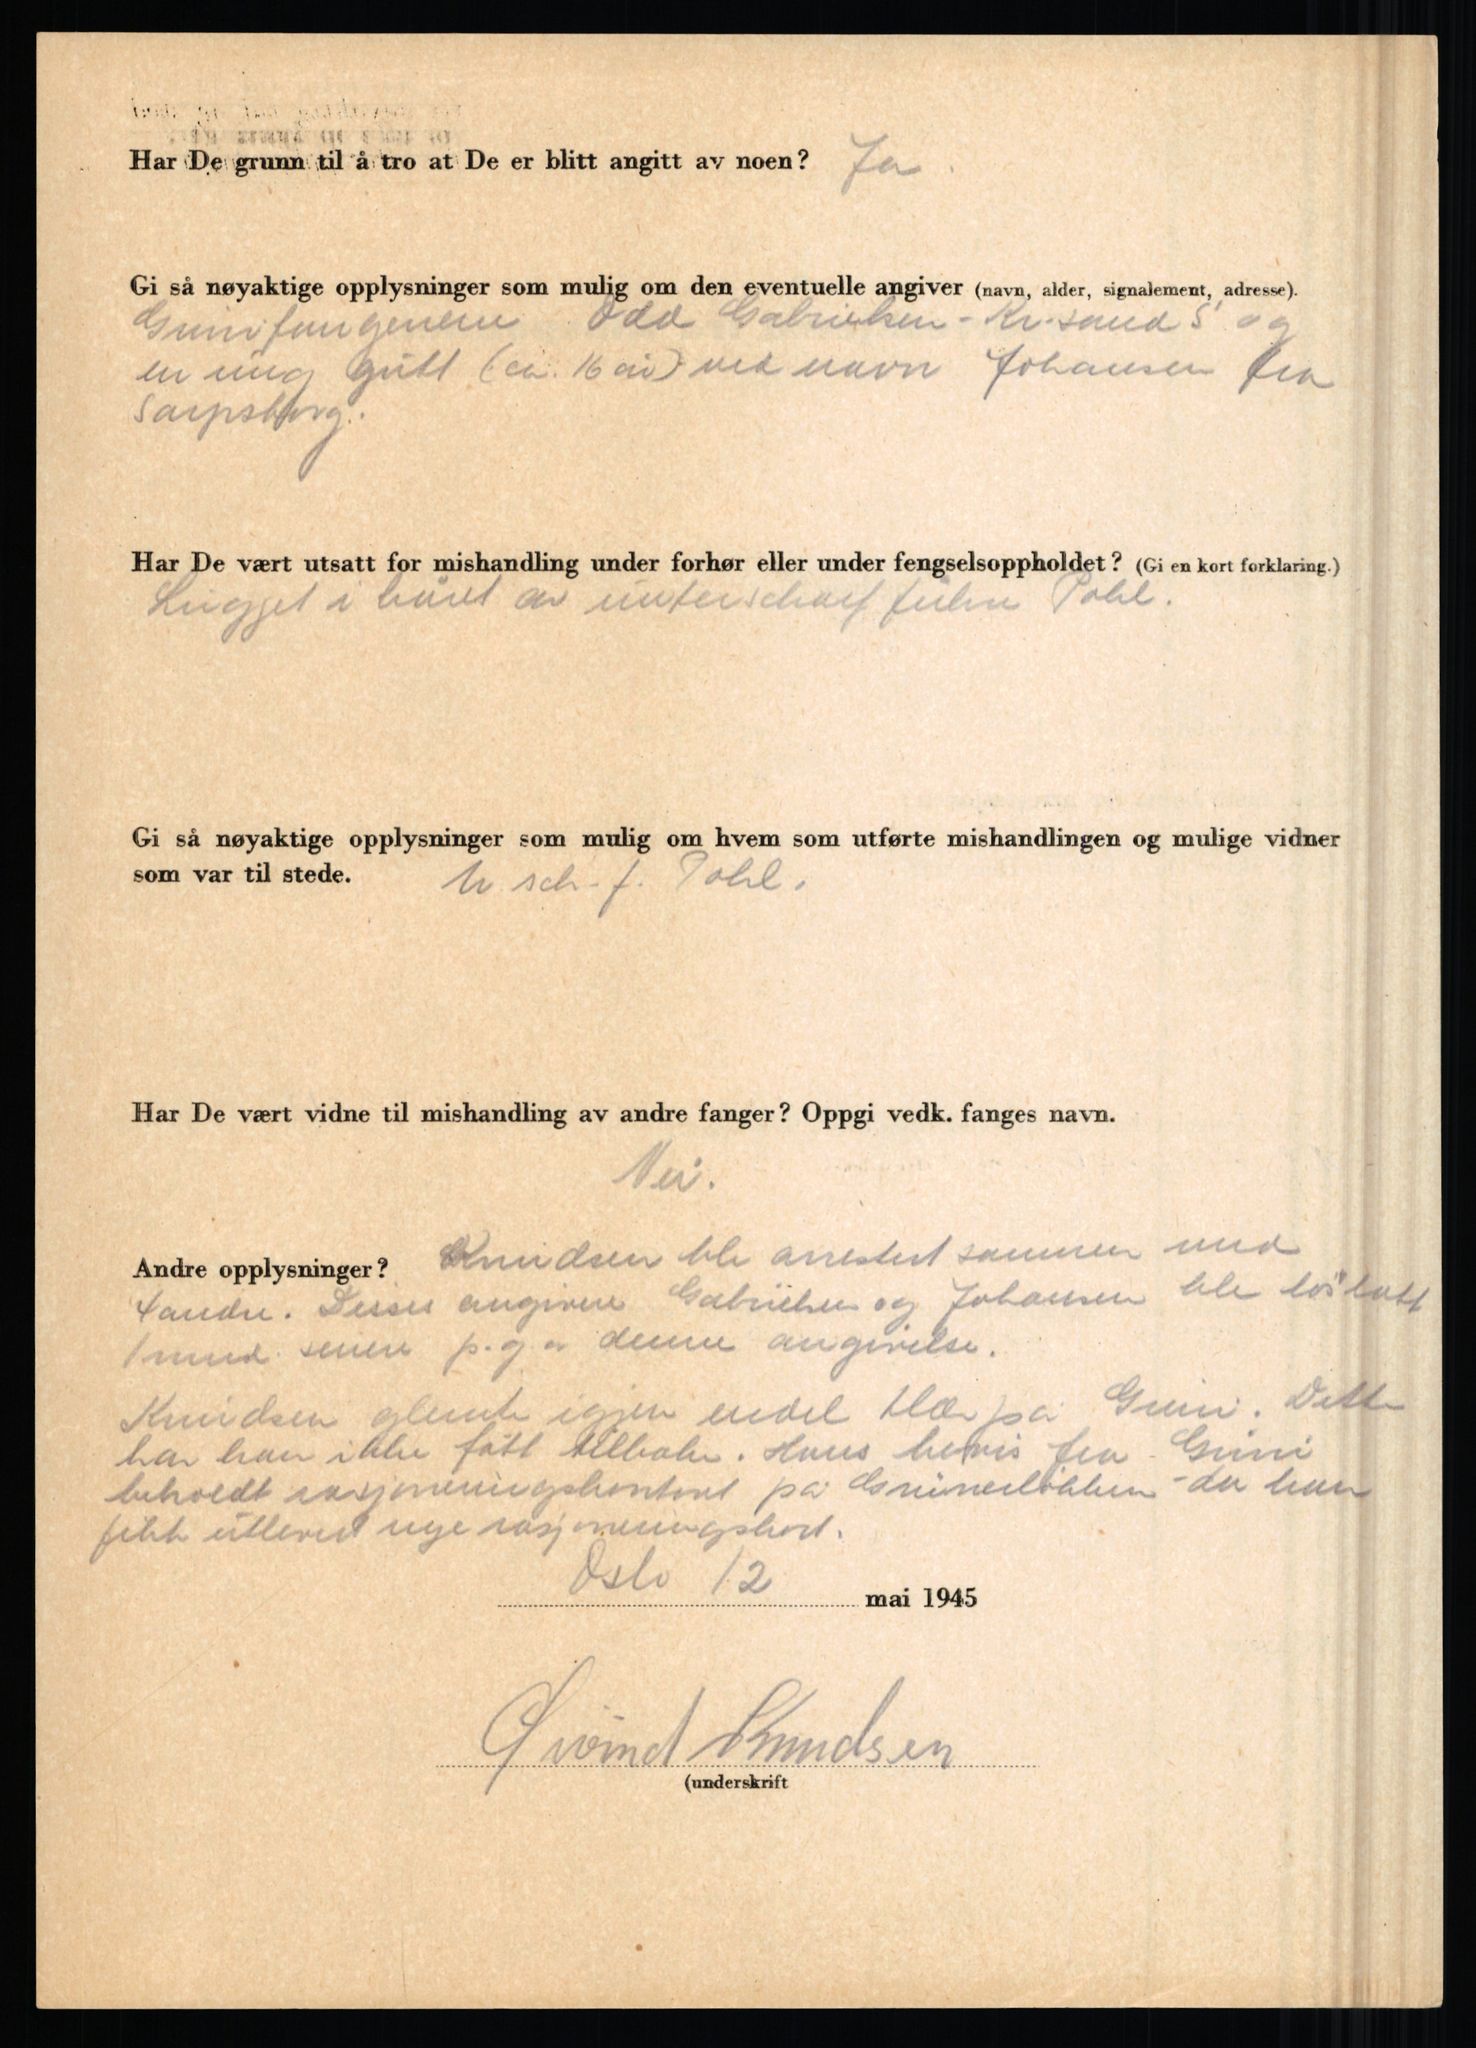 Har De grunn til å tro at De er blitt angitt av noen? Ja.
Gi så nøyaktige opplysninger som mulig om den eventuelle angiver (navn, alder, signalement, adresse).
Grinifangenene Odd Gabrielsen - Kr.sand S og
en ung gutt (ca. 16 år) ved navn Johansen fra
Sarpsborg.
Har De vært utsatt for mishandling under forhør eller under fengselsoppholdet? (Gi en kort forklaring.)
Lugget i håret av unterscharfführer Pohl.
Gi så nøyaktige opplysninger som mulig om hvem som utførte mishandlingen og mulige vidner
som var til stede. U. sch-f. Pohl.
Har De vært vidne til mishandling av andre fanger? Oppgi vedk. fanges navn.
Nei.
Andre opplysninger? Knudsen ble arrestert sammen med
4 andre. Disses angivere Gabrielsen og Johansen ble løslatt
1 mnd. senere p.g.a denne angivelse.
Knudsen glemte igjen endel klær på Grini. Dette
har han ikke fått tilbake. Hans bevis fra Grini
beholdt rasjoneringskontoret på Grünerløkken - da han
fikk utlevert nye rasjoneringskort.
Oslo 12 mai 1945
Øivind Knudsen
(underskrift